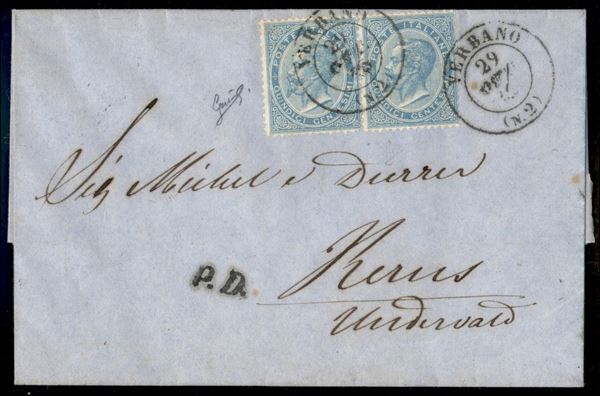 POSTE ITALIANE
QUINDICI CENTESIMI
POSTE ITALIANE
QUINDICI CENTESIMI
VERBANO
(N.2)
VERBANO
29
(N.2)
Sig Michel e Durrer
P.D.
Kerns
Undervald